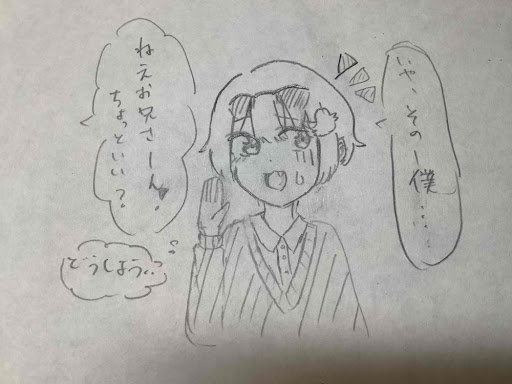 いや、そのー僕……
ねえお兄さーん♥
ちょっといい?
どうしよう…?